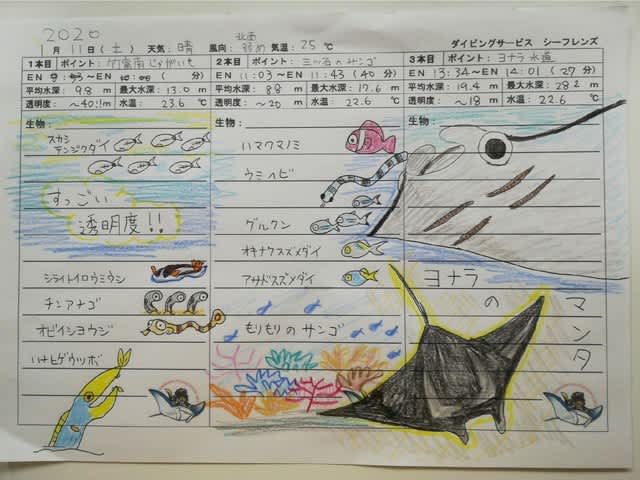 2020
1月11日(土) 天気:晴 風向:北西 弱め 気温:25℃ ダイビングサービス シーフレンズ
1本目 ポイント:竹富南じゃがいも
EN ~EN
平均水深 9.8 m 最大水深:13.0 m
透明度:~40!!m 水温: 23.6 ℃
生物:
スカシ
テンジクダイ
すっごい
透明度!!
シライトイロウミウシ
チンアナゴ
オビイシヨウジ
ハナヒゲウツボ
2本目 ポイント:三ツ石のサンゴ
EN 11:03~EN 11:43 (40 分)
平均水深 8.8 m 最大水深:17.6 m
透明度:~20 m 水温: 22.6 ℃
生物:
ハマクマノミ
ウミヘビ
グルクン
オキナワスズメダイ
アサドスズメダイ
もりもりのサンゴ
3本目 ポイント:ヨナラ水道
EN 13:34~EN 14:01 (27 分)
平均水深 19.4 m 最大水深:28.2 m
透明度:~18 m 水温: 22.6 ℃
生物:
ヨナラ
の
マンタ